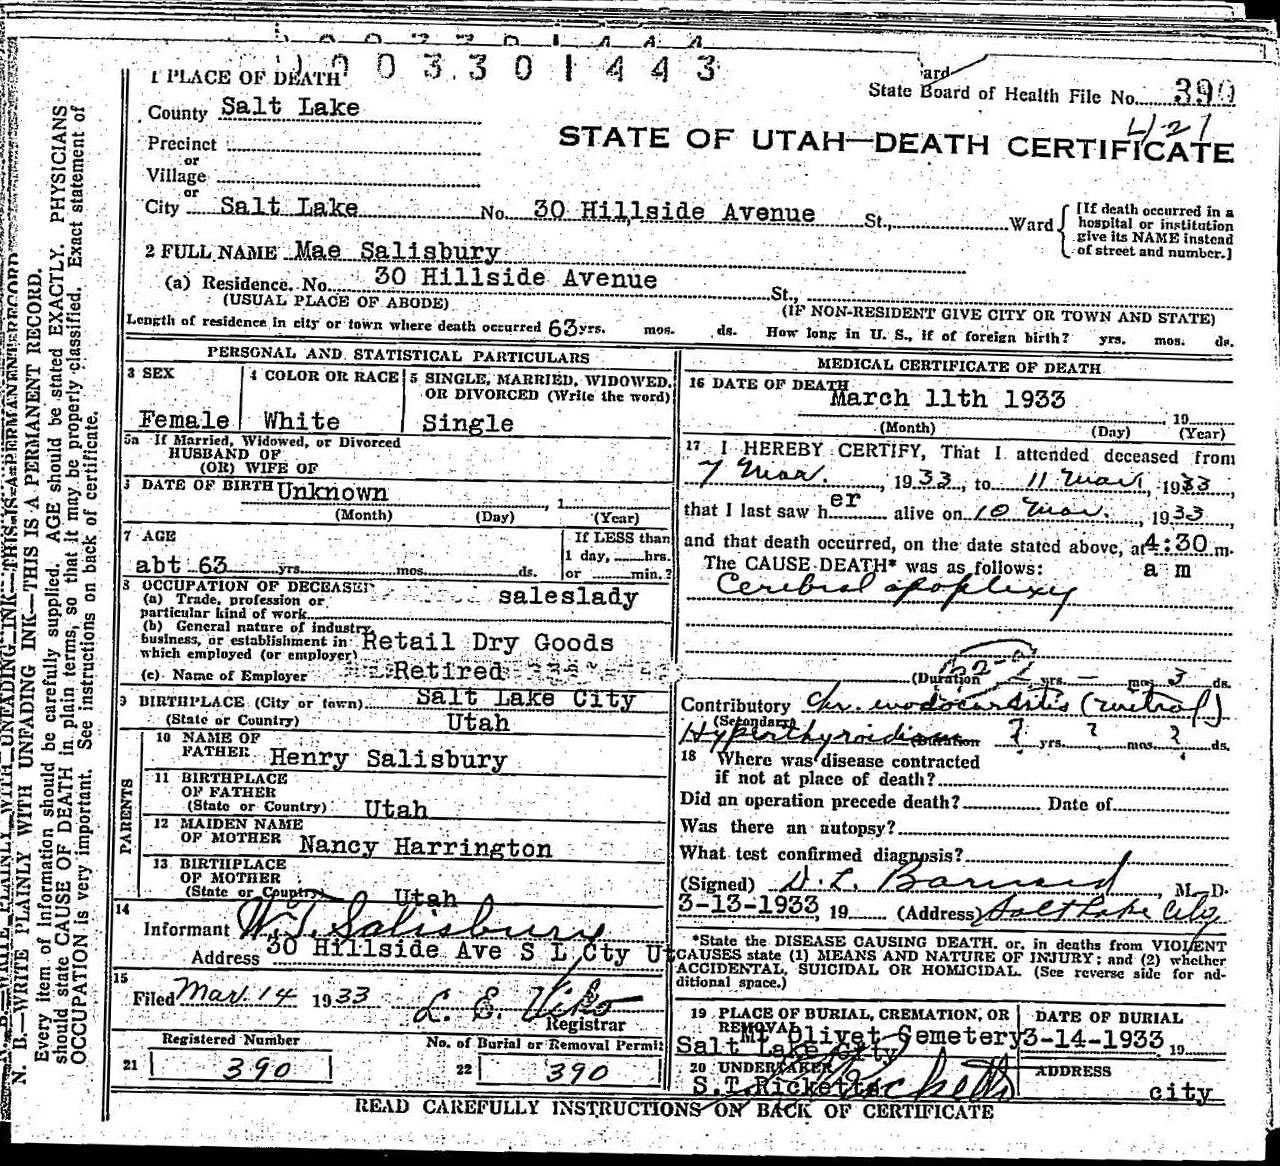 003301443
1 PLACE OF DEATH
State Board of Health File No. 390
421
County Salt Lake
STATE OF UTAH—DEATH CERTIFICATE
Precinct
or
Village
or
City Salt Lake No. 30 Hillside Avenue St., Ward
[If death occurred in a hospital or institution give its NAME instead of street and number.]
2 FULL NAME Mae Salisbury
(a) Residence. No. 30 Hillside Avenue St.,
(USUAL PLACE OF ABODE) (IF NON-RESIDENT GIVE CITY OR TOWN AND STATE)
Length of residence in city or town where death occurred 63 yrs. mos. ds. How long in U. S., if of foreign birth? yrs. mos. ds.
PERSONAL AND STATISTICAL PARTICULARS
3 SEX
Female
4 COLOR OR RACE
White
5 SINGLE, MARRIED, WIDOWED,
OR DIVORCED (Write the word)
Single
5a If Married, Widowed, or Divorced
HUSBAND OF
(OR) WIFE OF
DATE OF BIRTH Unknown , 1
(Month) (Day) (Year)
7 AGE
abt 63 yrs. mos. ds.
If LESS than
1 day, hrs.
or min.?
8 OCCUPATION OF DECEASED
(a) Trade, profession or
particular kind of work saleslady
(b) General nature of industry,
business, or establishment in
which employed (or employer) Retail Dry Goods
(c) Name of Employer Retired
9 BIRTHPLACE (City or town) Salt Lake City
(State or Country) Utah
PARENTS
10 NAME OF
FATHER Henry Salisbury
11 BIRTHPLACE
OF FATHER
(State or Country) Utah
12 MAIDEN NAME
OF MOTHER Nancy Harrington
13 BIRTHPLACE
OF MOTHER
(State or Country) Utah
14
Informant W.T. Salisbury
Address 30 Hillside Ave S L Cty Ut
15
Filed Mar. 14 1933
Registrar
Registered Number
21 390
No. of Burial or Removal Permit
22 390
MEDICAL CERTIFICATE OF DEATH
16 DATE OF DEATH
March 11th 1933 19
(Month) (Day) (Year)
17 I HEREBY CERTIFY, That I attended deceased from
7 Mar. , 1933, to 11 Mar, 1933,
that I last saw her alive on 10 Mar. , 1933
and that death occurred, on the date stated above, at 4:30 m.
The CAUSE DEATH* was as follows: a m
Cerebral apoplexy
(Duration yrs. — mos. 3 ds.
Contributory Chr. endocarditis (mitral)
(Secondary)
Hyperthyroidism (Duration ? yrs. ? mos. ? ds.
18 Where was disease contracted
if not at place of death?
Did an operation precede death? Date of
Was there an autopsy?
What test confirmed diagnosis?
(Signed) D. L. Barnard, M. D.
3-13-1933, 19 (Address) Salt Lake City
*State the DISEASE CAUSING DEATH, or, in deaths from VIOLENT
CAUSES state (1) MEANS AND NATURE OF INJURY; and (2) whether
ACCIDENTAL, SUICIDAL OR HOMICIDAL. (See reverse side for ad-
ditional space.)
19 PLACE OF BURIAL, CREMATION, OR
REMOVAL
Mt Olivet Cemetery
Salt Lake City
DATE OF BURIAL
3-14-1933 19
20 UNDERTAKER
S.T.Ricketts
ADDRESS
city
READ CAREFULLY INSTRUCTIONS ON BACK OF CERTIFICATE
N. B.—WRITE PLAINLY WITH UNFADING INK—THIS IS A PERMANENT RECORD.
Every item of information should be carefully supplied. AGE should be stated EXACTLY. PHYSICIANS
should state CAUSE OF DEATH in plain terms, so that it may be properly classified. Exact statement of
OCCUPATION is very important. See instructions on back of certificate.